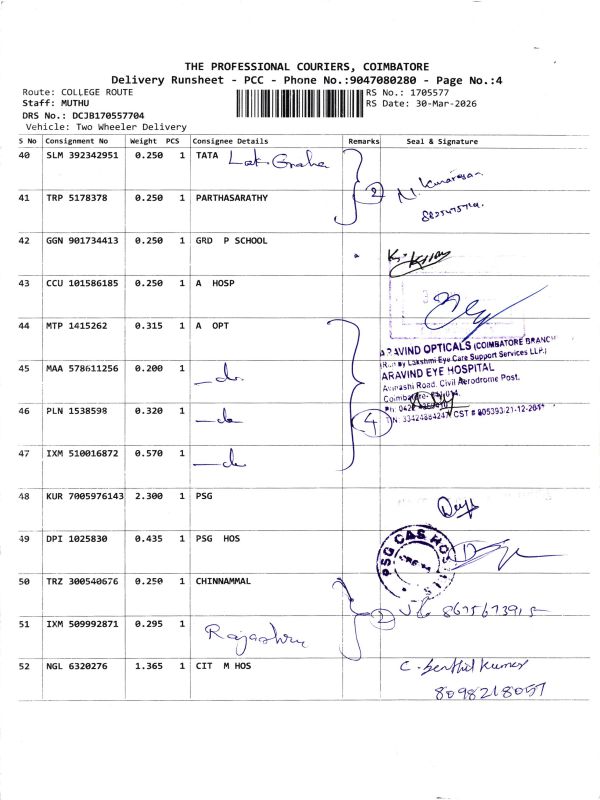 THE PROFESSIONAL COURIERS, COIMBATORE
Delivery Runsheet - PCC - Phone No.:9047080280 - Page No.:4
Route: COLLEGE ROUTE
RS No.: 1705577
Staff: MUTHU
RS Date: 30-Mar-2026
DRS No.: DCJB170557704
Vehicle: Two Wheeler Delivery
S No Consignment No Weight PCS Consignee Details Remarks Seal & Signature
40 SLM 392342951 0.250 1 TATA
41 TRP 5178378 0.250 1 PARTHASARATHY 2
42 GGN 901734413 0.250 1 GRD P SCHOOL
43 CCU 101586185 0.250 1 A HOSP
44 MTP 1415262 0.315 1 A OPT
ARAVIND OPTICALS (COIMBATORE BRANCH
(Run by Lakshmi Eye Care Support Services LLP.)
45 MAA 578611256 0.200 1 — do
ARAVIND EYE HOSPITAL
Avinashi Road, Civil Aerodrome Post,
46 PLN 1538598 0.320 1 — do 4
47 IXM 510016872 0.570 1 — do
48 KUR 7005976143 2.300 1 PSG
49 DPI 1025830 0.435 1 PSG HOS
PSG CAS HOSTELS
50 TRZ 300540676 0.250 1 CHINNAMMAL
2
51 IXM 509992871 0.295 1
52 NGL 6320276 1.365 1 CIT M HOS C. Senthil Kumar
8098218057